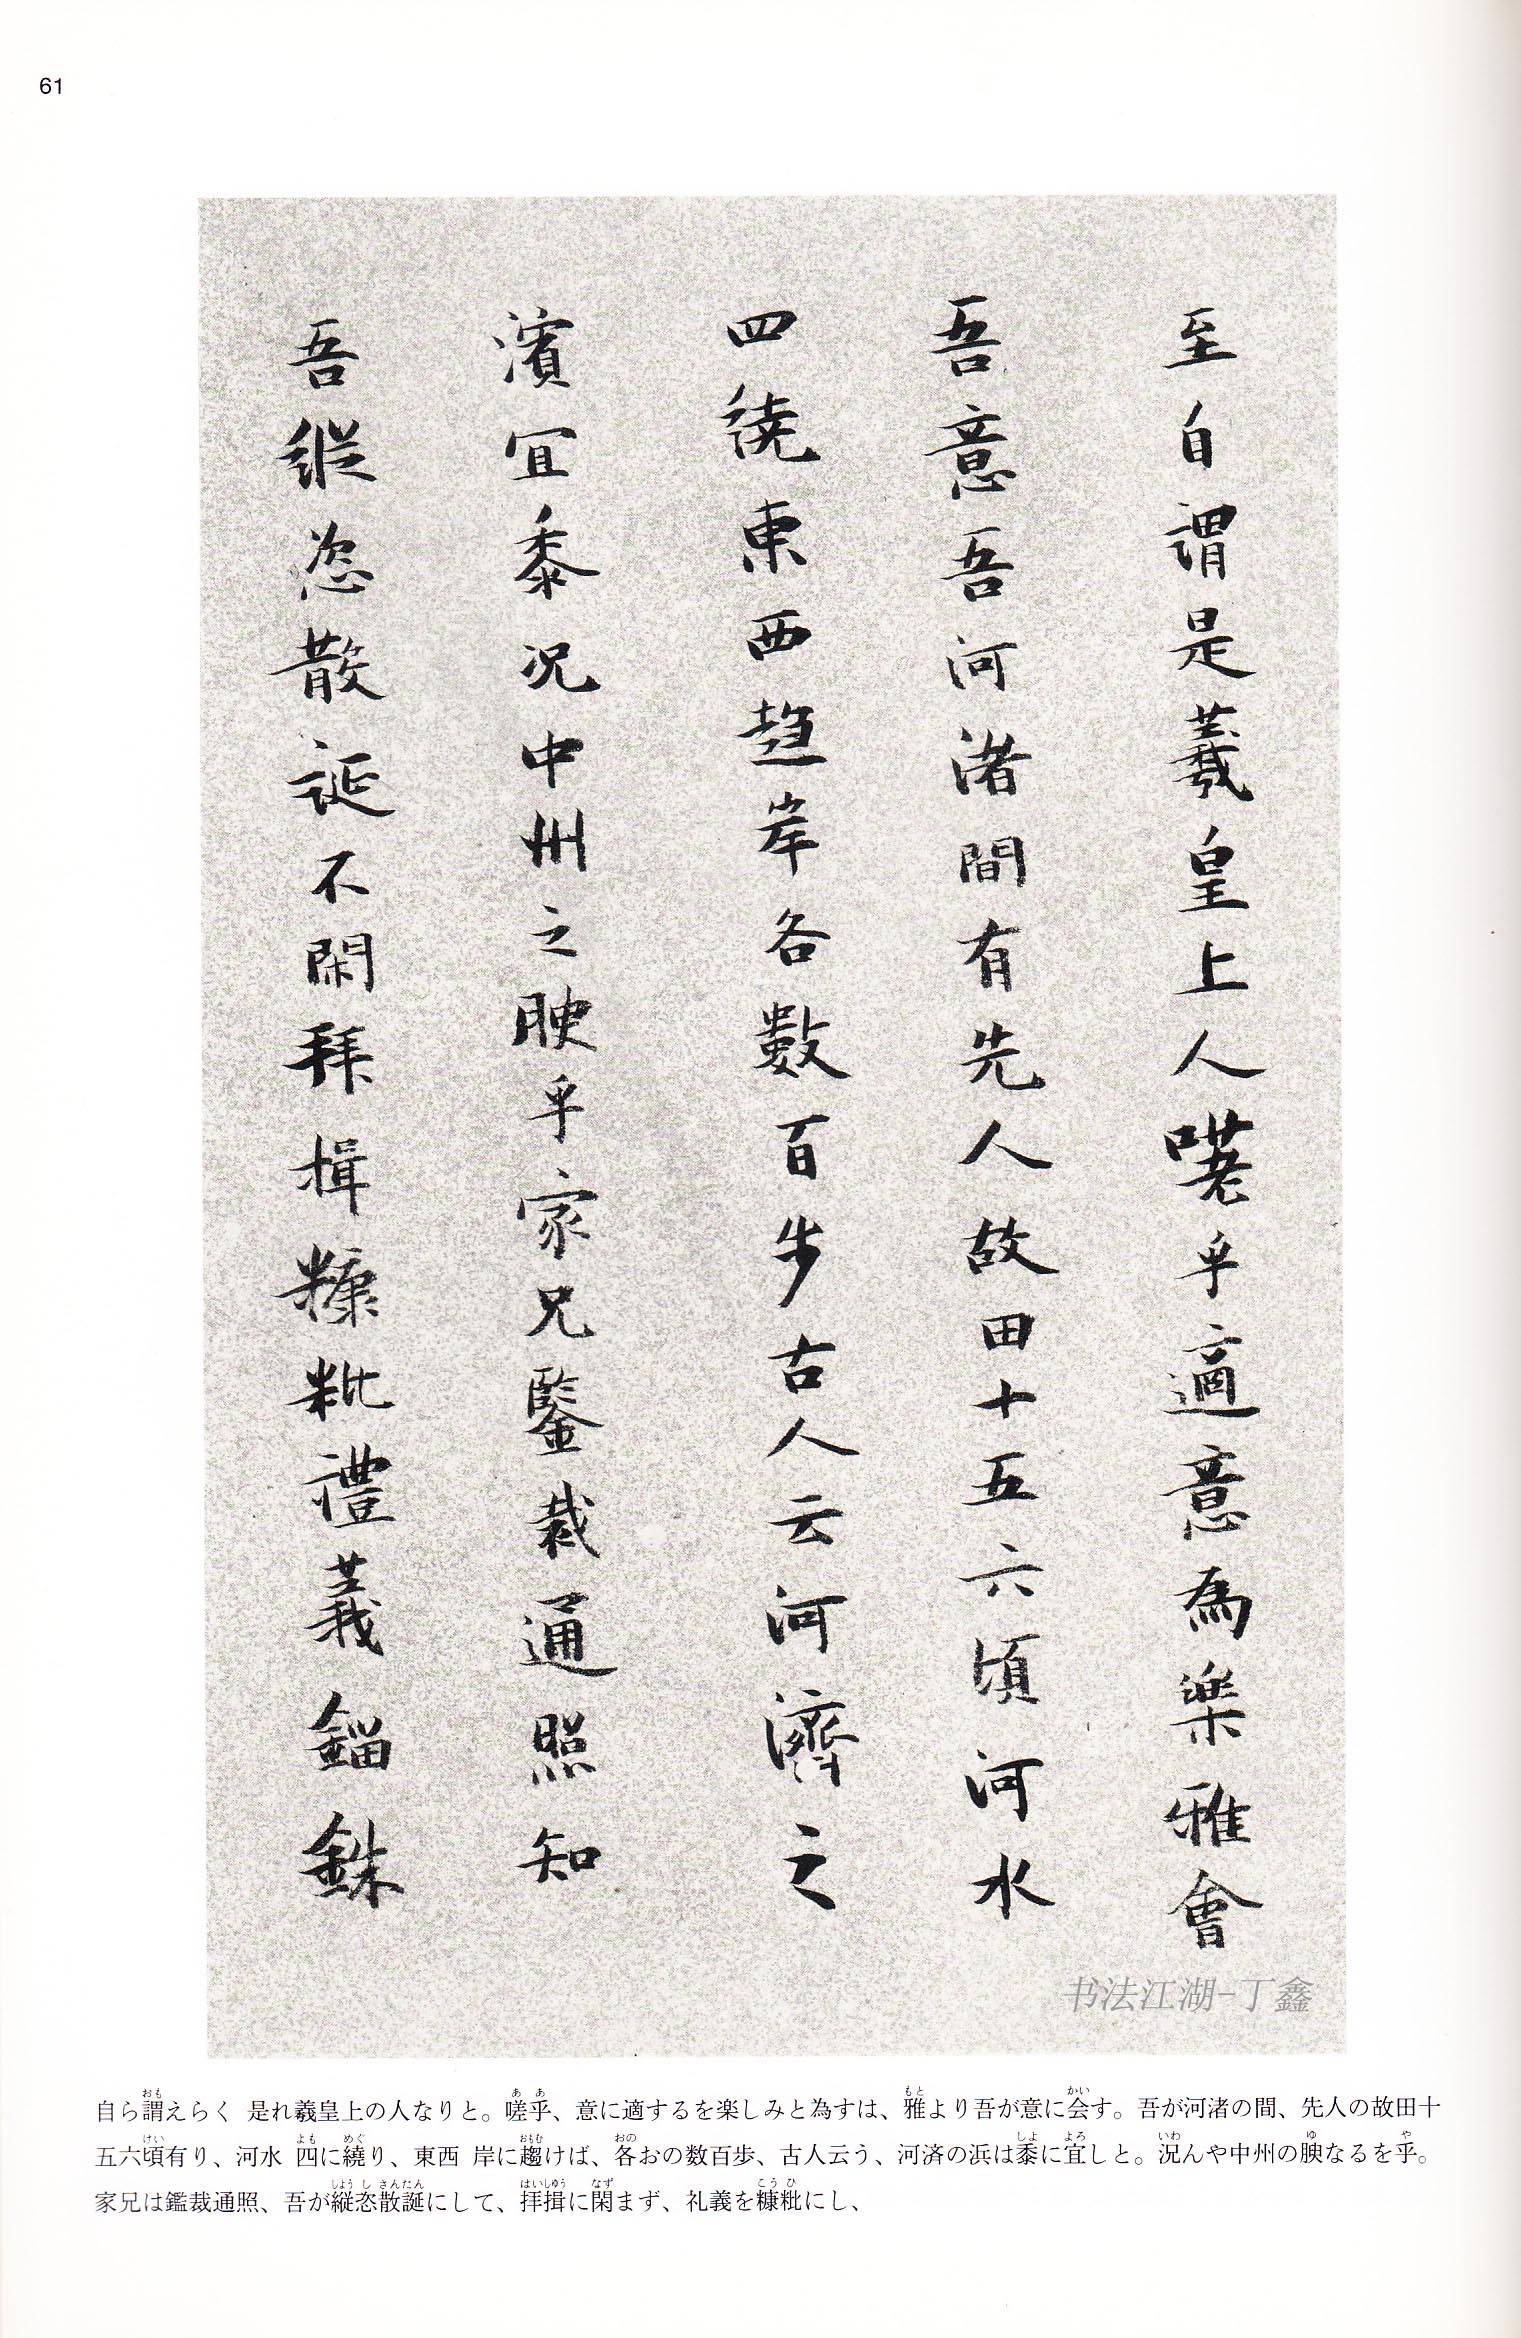 61
至自謂是羲皇上人嗟乎適意為樂雅會
吾意吾河渚間有先人故田十五六頃河水
四繞東西趨岸各數百步古人云河濟之
濱宜黍況中州之腴乎家兄鑒裁通照知
吾縱恣散誕不閑拜揖糠粃禮義錙銖
书法江湖-丁鑫
自ら謂えらく 是れ羲皇上の人なりと。嗟乎、意に適するを楽しみと為すは、雅より吾が意に会す。吾が河渚の間、先人の故田十
五六頃有り、河水 四に繞り、東西 岸に趨けば、各おの数百歩、古人云う、河済の浜は黍に宜しと。況んや中州の腴なるを乎。
家兄は鑑裁通照、吾が縦恣散誕にして、拝揖に閑まず、礼義を糠粃にし、